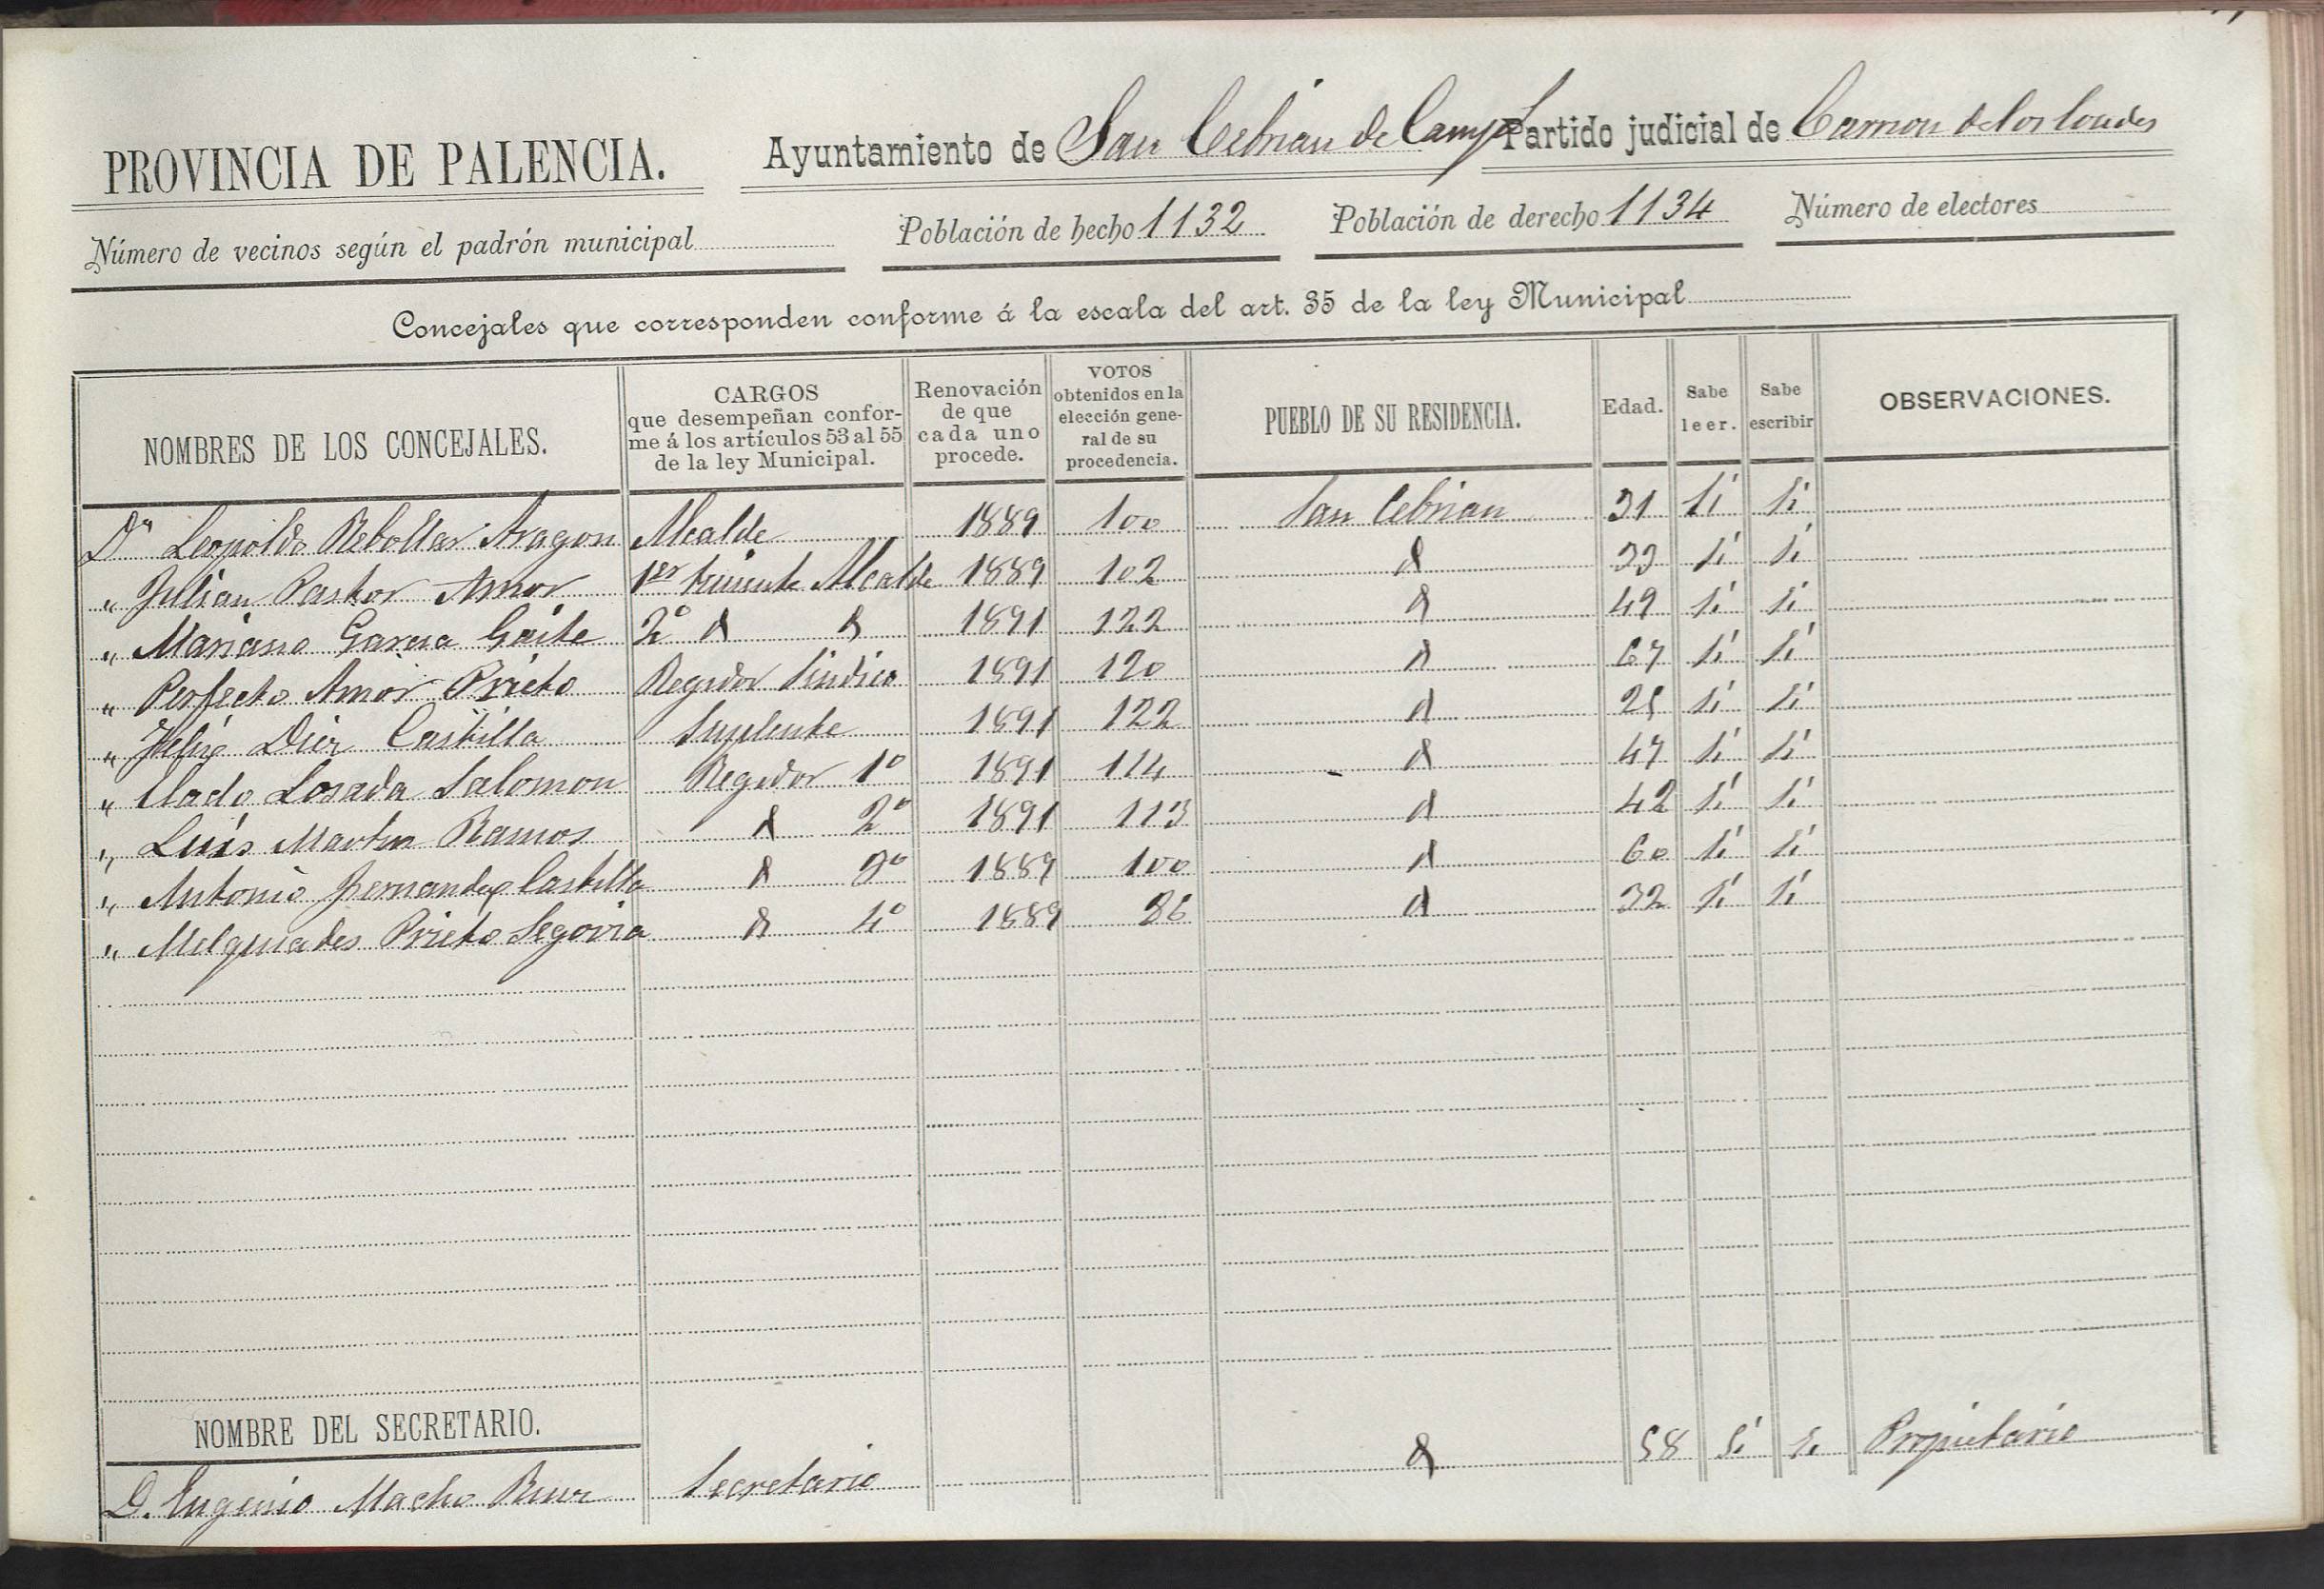 PROVINCIA DE PALENCIA. Ayuntamiento de San Cebrian de Campos Partido judicial de Carrion de los Condes
Número de vecinos según el padrón municipal Población de hecho 1132 Población de derecho 1134 Número de electores
Concejales que corresponden conforme á la escala del art. 35 de la ley Municipal
NOMBRES DE LOS CONCEJALES. CARGOS que desempeñan conforme á los artículos 53 al 55 de la ley Municipal. Renovación de que cada uno procede. VOTOS obtenidos en la elección general de su procedencia. PUEBLO DE SU RESIDENCIA. Edad. Sabe leer. Sabe escribir OBSERVACIONES.
Dn Leopoldo Rebollar Aragon Alcalde 1889 100 San Cebrian 31 Si Si
" Julian Pastor Amor 1er teniente Alcalde 1889 102 d 33 Si Si
" Mariano Garcia Gaite 2º d d 1891 122 d 49 Si Si
" Perfecto Amor Prieto Regidor Sindico 1891 120 d 67 Si Si
" Felix Diez Castilla Suplente 1891 122 d 25 Si Si
" Losada Salomon Regidor 1º 1891 114 d 47 Si Si
" Luis Martin Ramos d 2º 1891 113 d 42 Si Si
" Antonio Fernandez Castilla d 3º 1889 100 d 60 Si Si
" Melquiades Prieto Segovia d 4º 1889 86 d 32 Si Si
NOMBRE DEL SECRETARIO.
D. Eugenio Macho Secretario d 58 Si Si Propietario